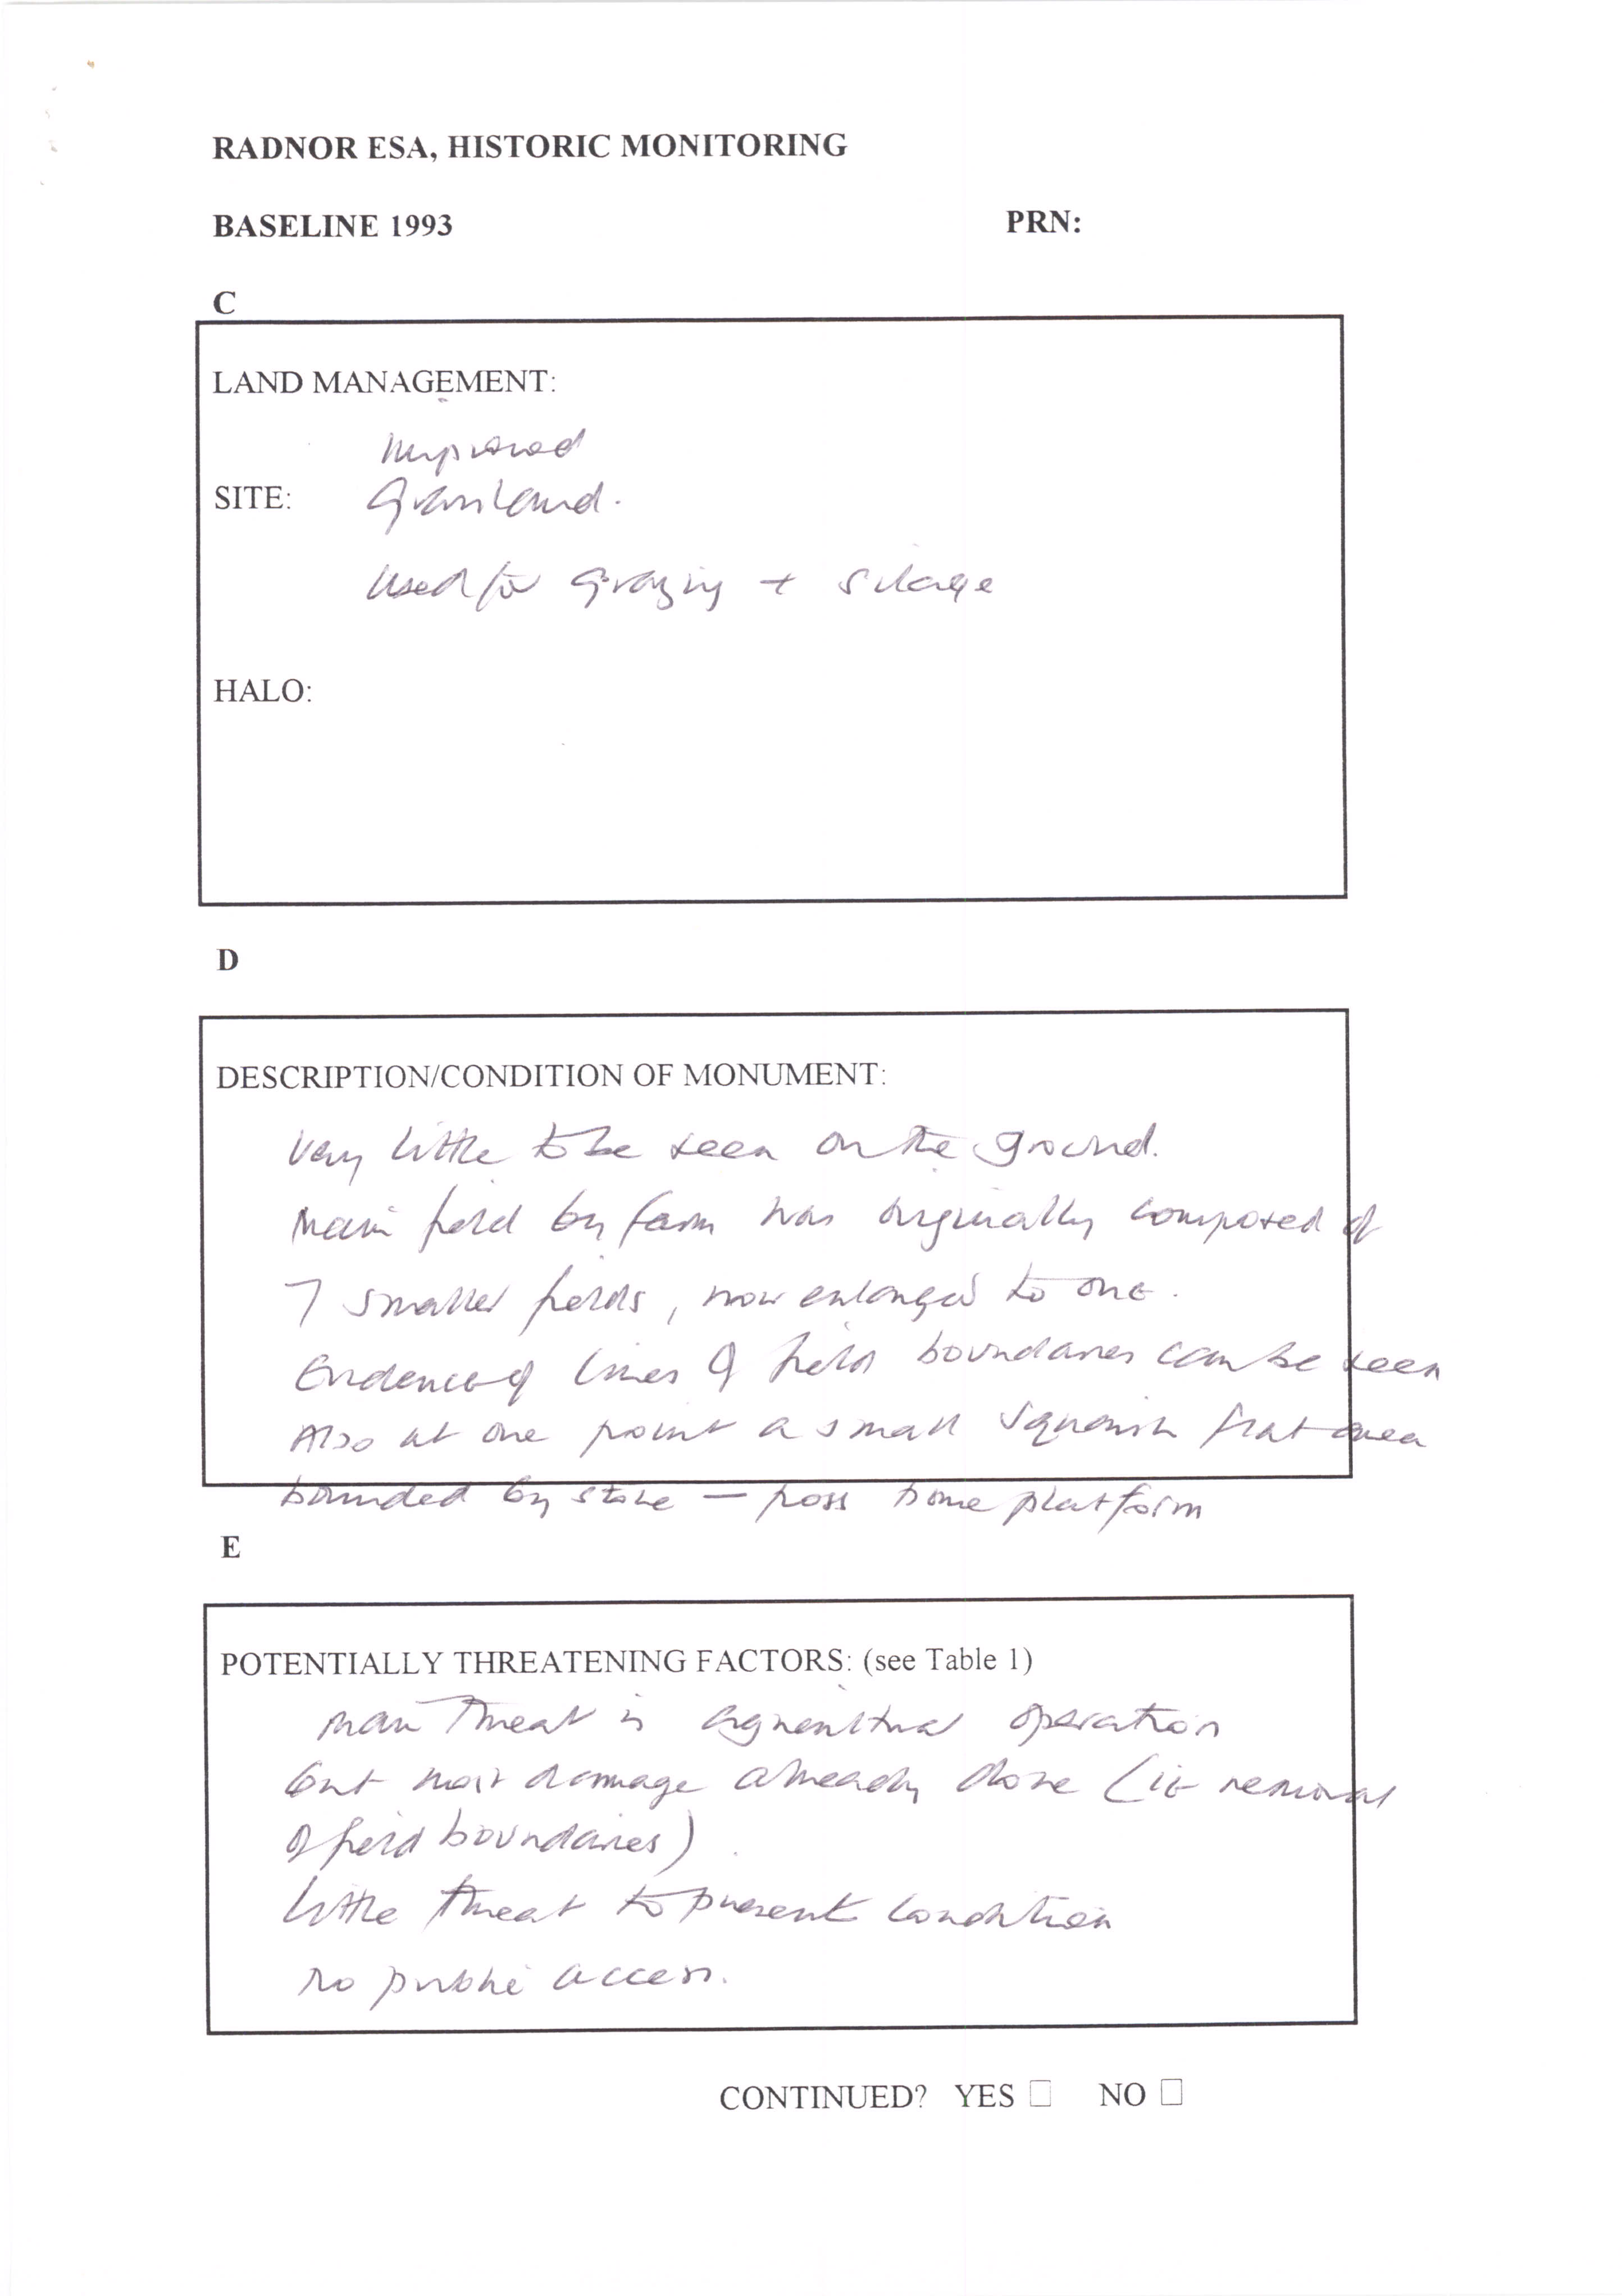 RADNOR ESA, HISTORIC MONITORING
BASELINE 1993 PRN:
C
LAND MANAGEMENT:
Improved
SITE: Grassland.
Used for grazing + silage
HALO:
D
DESCRIPTION/CONDITION OF MONUMENT:
Very little to be seen on the ground.
Main field by farm was originally composed of
7 smaller fields, now enlarged to one.
Evidence of lines of field boundaries can be seen
Also at one point a small squarish flat area
bounded by stone — poss platform
E
POTENTIALLY THREATENING FACTORS: (see Table 1)
Main threat is agricultural operation
but most damage already done (ie removal
of field boundaries)
Little threat to present condition
No public access.
CONTINUED? YES ☐ NO ☐